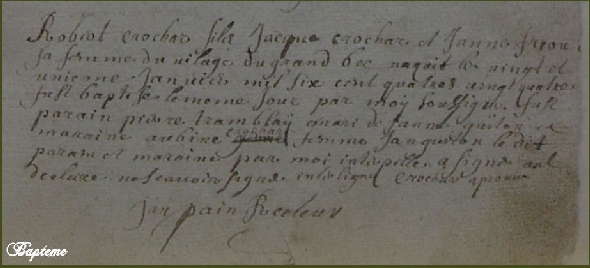 Robert crochar fils Jacque crochar et Janne
sa femme du vilage du grand bec naquit le vingt et
unieme Janvier mil six cent quatre vingt quatre
fust baptise le meme Jour par moy soussigne fust
parain pierre tramblay mari de et
maraine crochar femme le dit
parain et maraine par moi interpelle a signe
declare ne scavoir signe interligne crochar aprouve
Jan pain Recteur
Bapteme